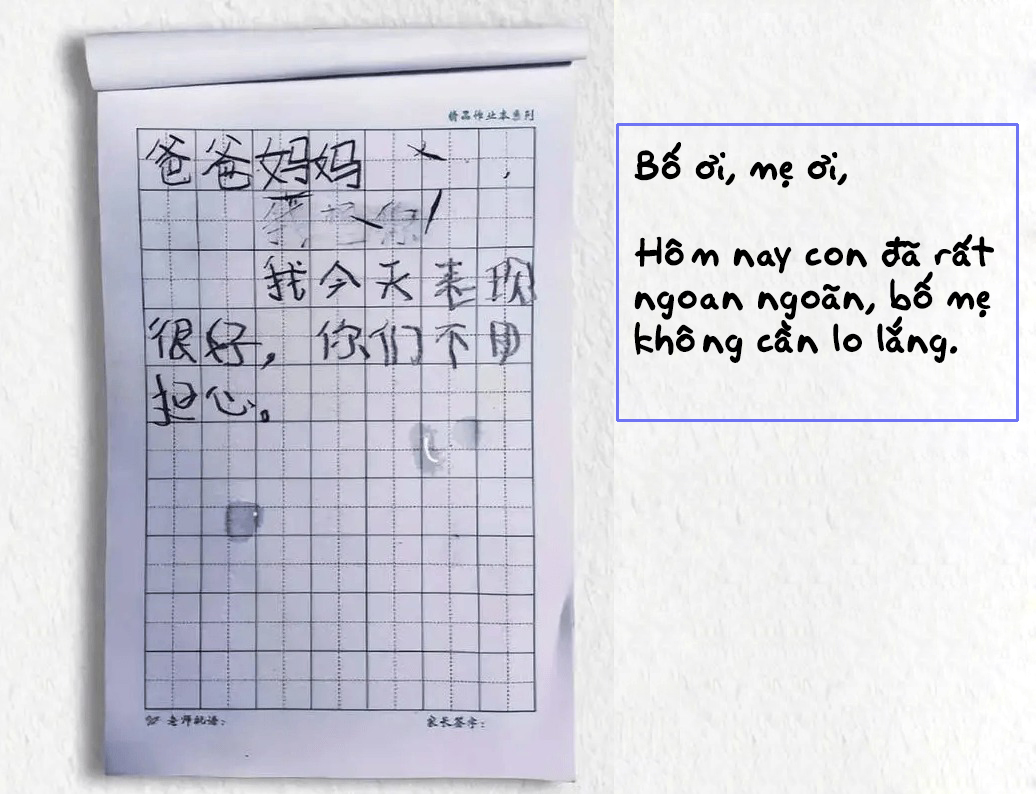 精品作业本系列
爸爸妈妈
我今天表现
很好，你们不用
担心。
老师批语：
家长签字：
Bố ơi, mẹ ơi,
Hôm nay con đã rất
ngoan ngoãn, bố mẹ
không cần lo lắng.